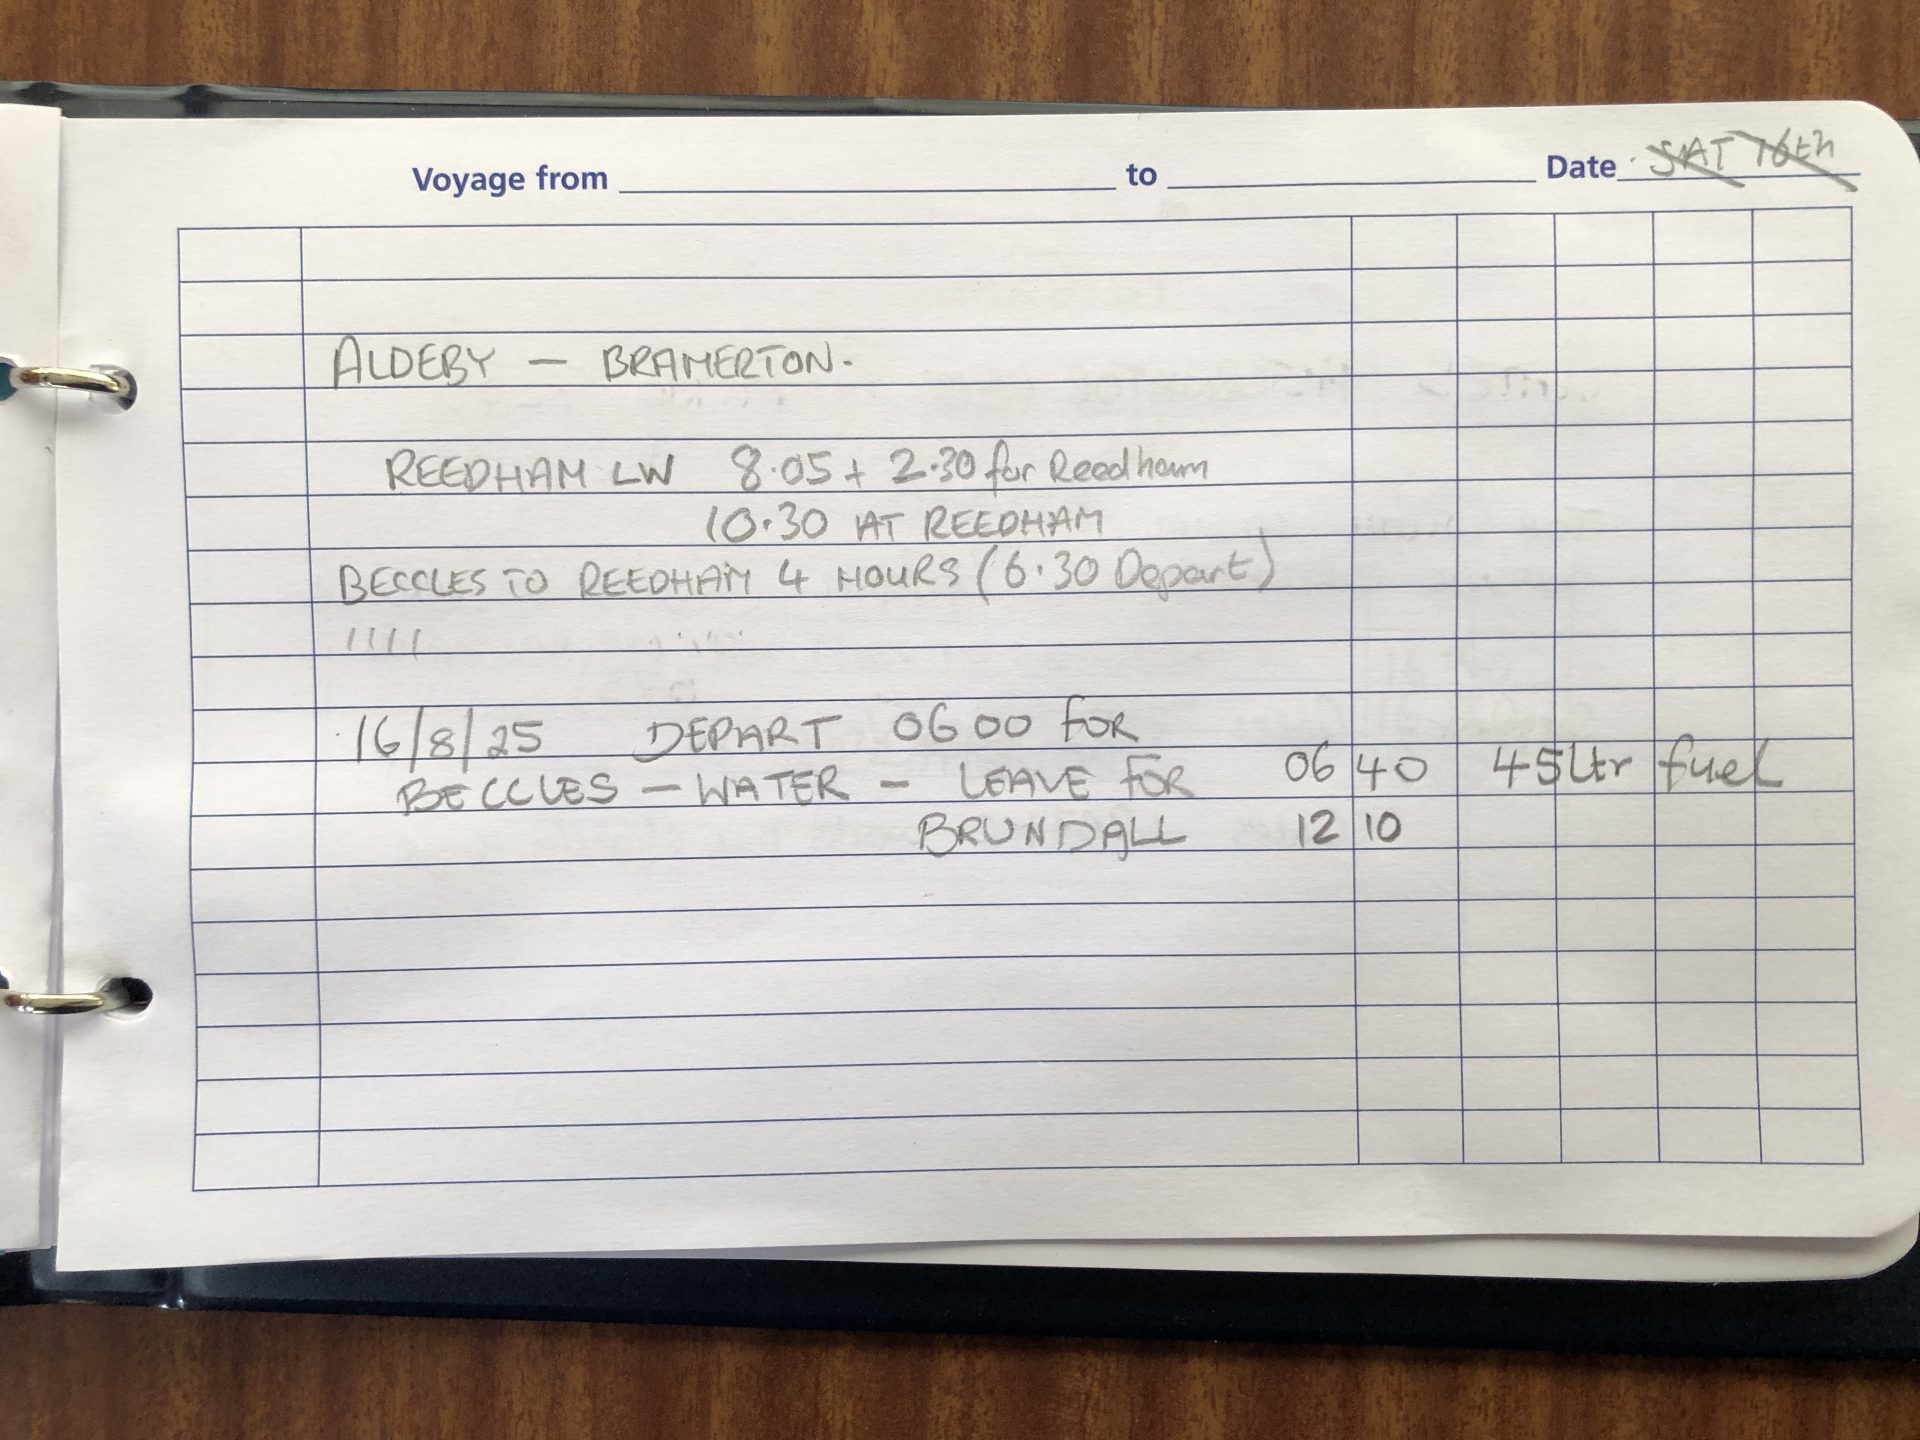 Voyage from to Date SAT 16th
ALDEBY — BRAMERTON.
REEDHAM LW 8.05 + 2.30 for Reedham
10.30 AT REEDHAM
BECCLES TO REEDHAM 4 HOURS (6.30 Depart)
||||
16/8/25 DEPART 0600 FOR
BECCLES — WATER — LEAVE FOR 06 40 45 Ltr fuel
BRUNDALL 12 10